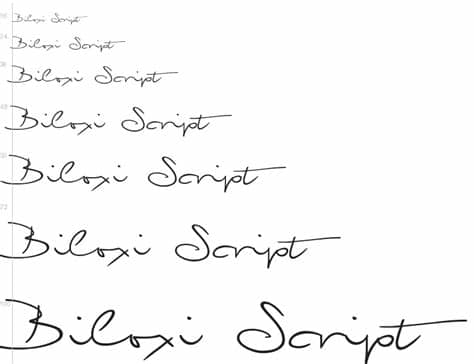 Biloxi Script
24 Biloxi Script
36 Biloxi Script
48 Biloxi Script
Biloxi Script
72 Biloxi Script
Biloxi Script